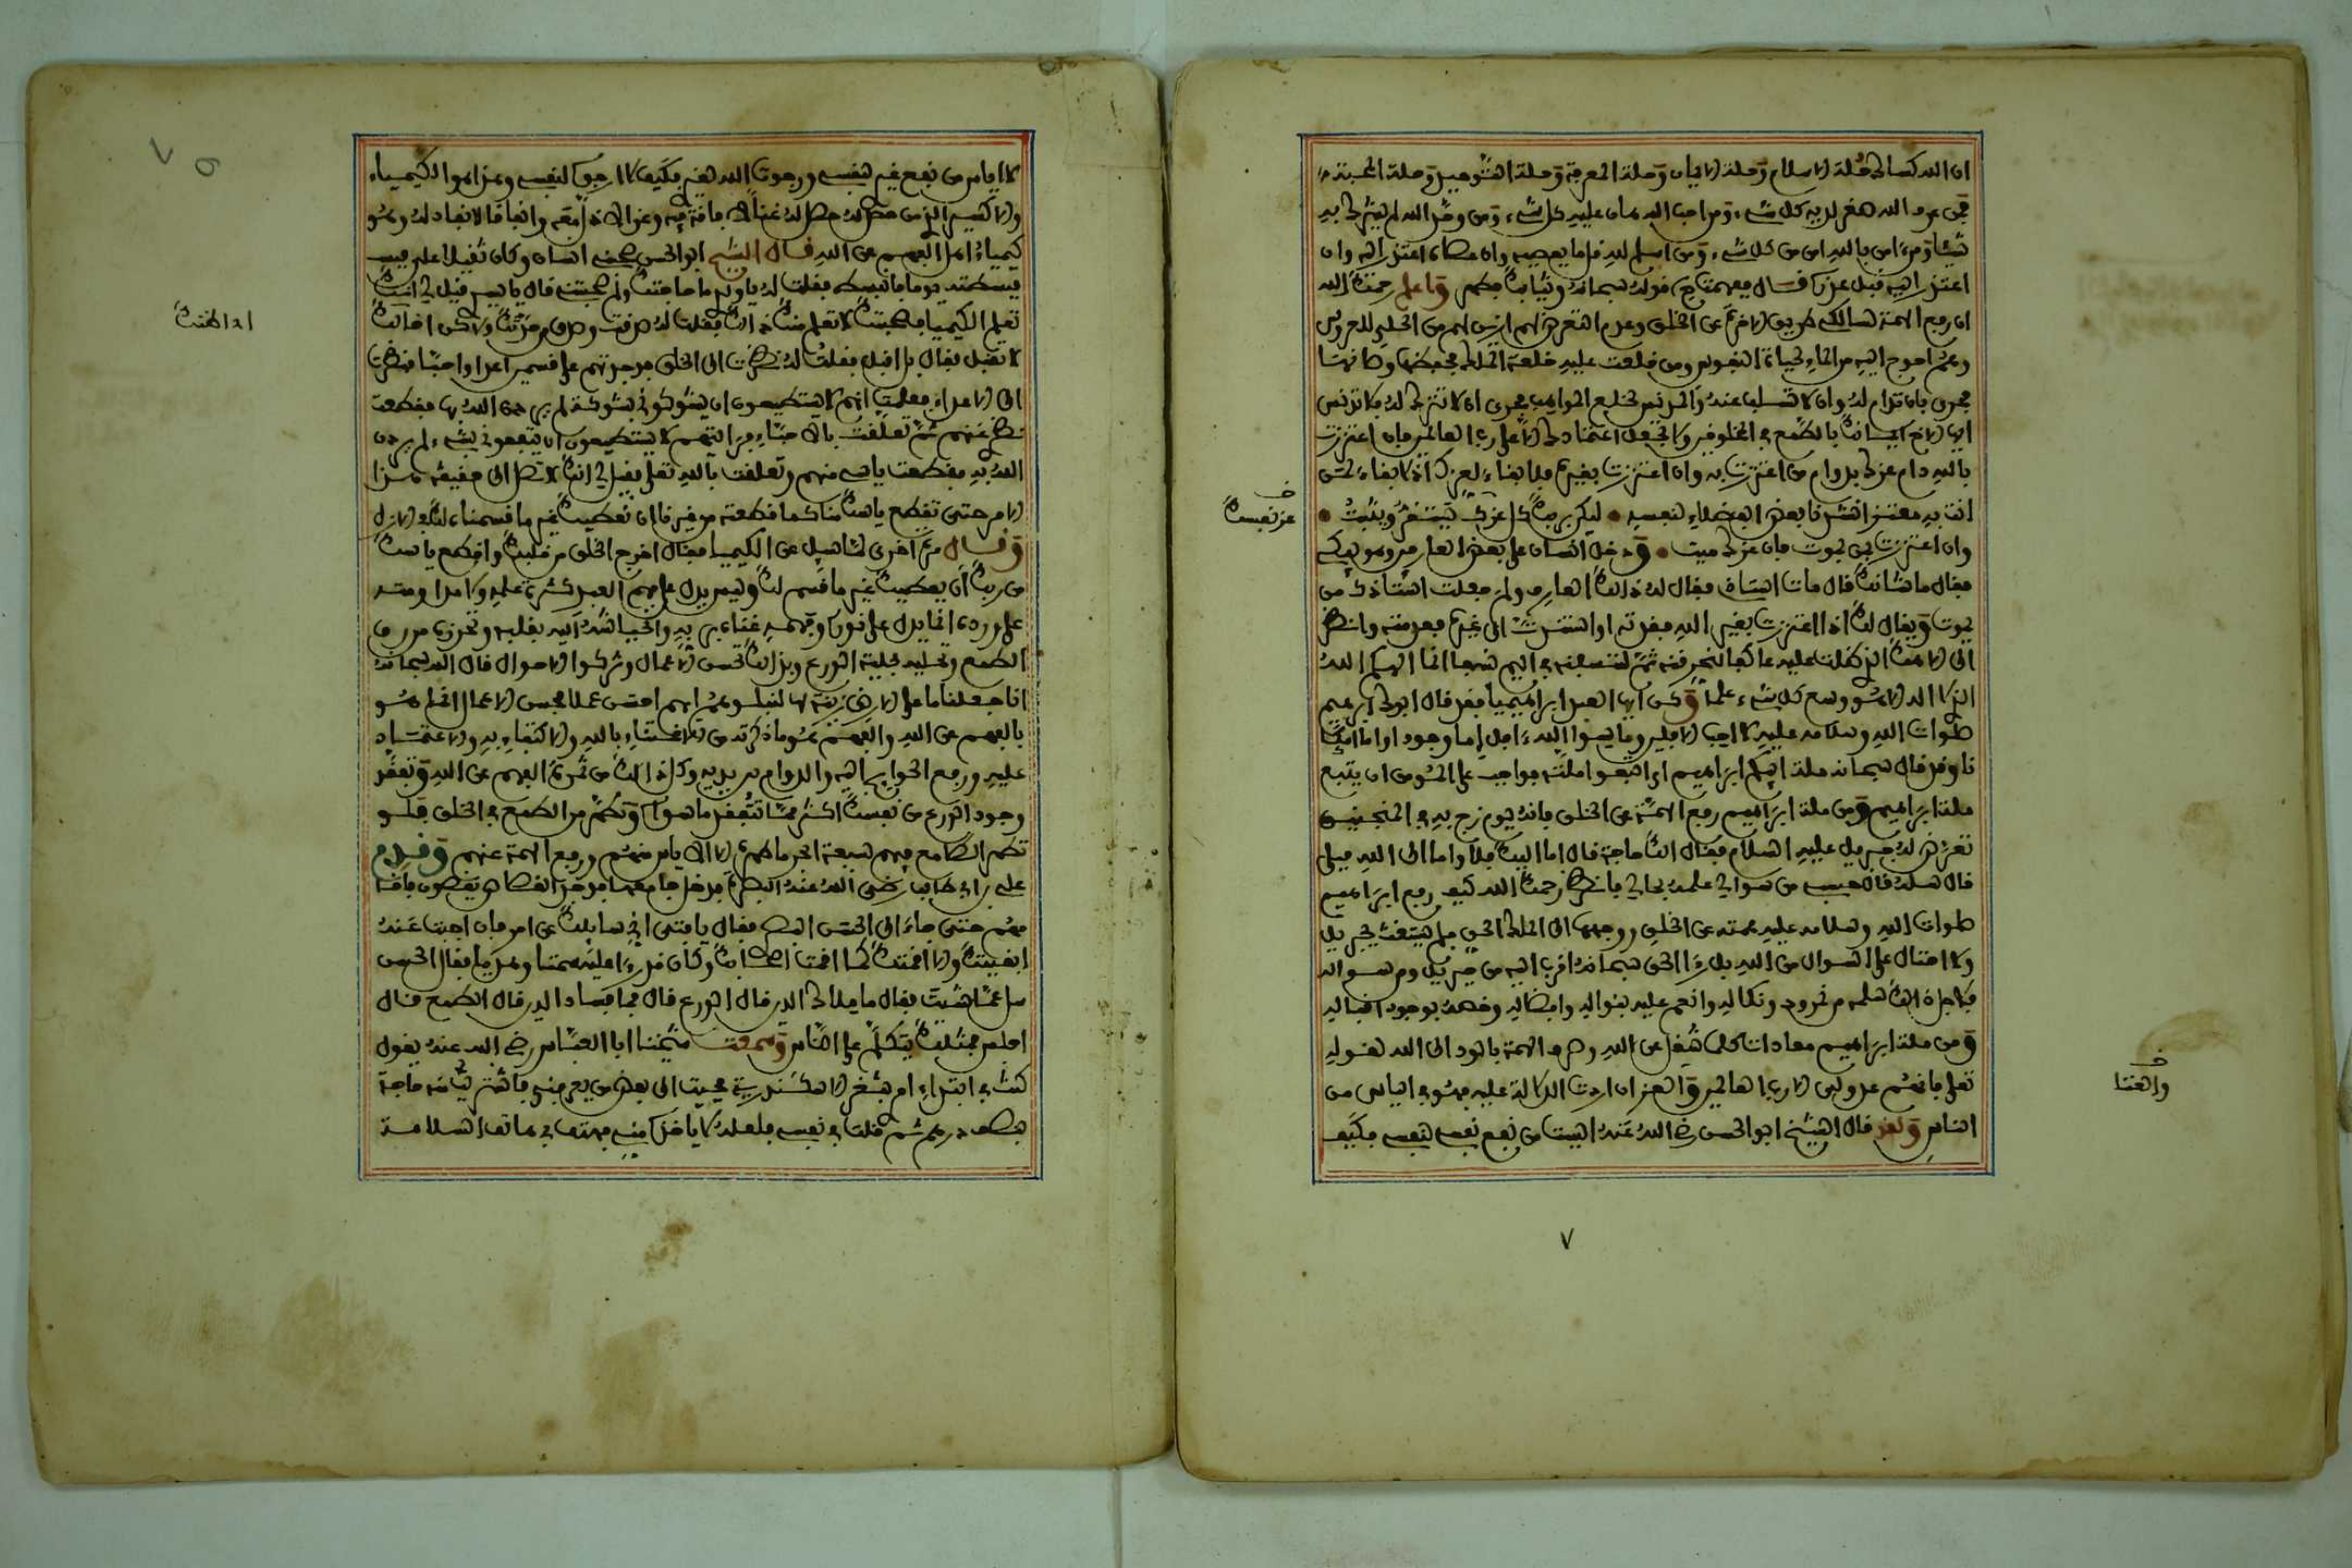 ان الله كساك حلة الاسلام وحلة الايمان وحلة المعرفة وحلة التوحيد وحلة المحبة
فمن عرف الله صغر لديه كل شيء ومن احب الله هان عليه كل شيء ومن وحد الله لم يشرك به
شيئا ومن امن بالله امن من كل شيء ومن اسلم لله قل ما يعصيه وان عصاه اعتذر اليه وان
اعتذر اليه قبل عذره قال ففهمت قوله سبحانه وثيابك فطهر واعلم رحمك الله
ان رفع الهمة لسالك طريق الاخرة عن الخلق وعدم التعرض لهم ازين لهم من الحلي للعروس
وهم احوج اليه من الماء لحياة النفوس ومن خلعت عليه خلعة الملك فحفظها وصانها
فحري بان تدام له وان لا تسلب عنه والمدنس لخلع المواهب فحري ان لا تترك له فلا تدنس
ايها الاخ ايمانك بالطمع في المخلوقين ولا تجعل اعتمادك الا على رب العالمين فان اعتززت
بالله دام عزك بدوام من اعتززت به وان اعتززت بغيره فلا بقاء لعزك اذ لا بقاء لمن
انت به معتز انشدنا بعض الفضلاء لنفسه ليكن بربك كل عزك يستقر ويثبت
وان اعتززت بمن يموت فان عزك ميت ودخل انسان على بعض العارفين وهو يبكي
فقال ما شانك قال مات استاذي فقال له ذلك العارف ولم جعلت استاذك من
يموت ويقال لك اذا اعتززت بغير الله ففقدته او استندت الى غيره فعدمته وانظر
الى الاهك الذي ظلت عليه عاكفا لنحرقنه ثم لننسفنه في اليم نسفا انما الهكم الله
الذي لا اله الا هو وسع كل شيء علما وكن ايها العبد ابراهيميا فقد قال ابوك ابراهيم
صلوات الله وسلامه عليه لا احب الافلين وما سوى الله ءافل اما وجودا واما امكانا
وقد قال سبحانه ملة ابيكم ابراهيم اي اتبعوا ملته فواجب على المومن ان يتبع
ملة ابراهيم ومن ملة ابراهيم رفع الهمة عن الخلق فانه يوم زج به في المنجنيق
تعرض له جبريل عليه السلام فقال الك حاجة قال اما اليك فلا واما الى الله فبلى
قال سله قال حسبي من سوالي علمه بحالي فانظر رحمك الله كيف رفع ابراهيم
صلوات الله وسلامه عليه همته عن الخلق ووجهها الى الملك الحق فلم يستغث بجبريل
ولا احتال على السوال من الله بل رءا الحق سبحانه اقرب اليه من جبريل ومن سواله
فلاجل ذلك سلمه من نمرود ونكاله وانعم عليه بنواله وافضاله وخصه بوجود اقباله
ومن ملة ابراهيم معادات كل ما شغل عن الله وصرف الهمة بالود الى الله لقوله
تعلى فانهم عدو لي الا رب العالمين والغنى ان اردت الدلالة عليه فهو في الياس من
الناس ولقد قال الشيخ ابو الحسن رضي الله عنه ايست من نفع نفسي لنفسي فكيف
خ عز نفسك
خ والغنا
٧
لا ايأس من نفع غيري لنفسي ورجوت الله لغيري فكيف لا ارجوه لنفسي وهذا هو الكيمياء
والاكسير الذي من حصل له حصل له غناء لا فاقة فيه وعز لا ذل معه وانفاق لا نفاد له وهو
كيمياء اهل الفهم عن الله قال الشيخ ابو الحسن صحبني انسان وكان ثقيلا علي
فبسطته يوما فانبسط فقلت له يا ولدي ما حاجتك ولم صحبتني قال يا سيدي قيل لي انك
تعلم الكيمياء فصحبتك لاتعلم منك ذلك فقلت له صدقت وصدق من حدثك ولاكن اخالك
لا تقبل فقال بل اقبل فقلت له نظرت الى الخلق فوجدتهم على قسمين اعداء واحباء فنظرت
الى الاعداء فعلمت انهم لا يستطيعون ان يشوكوني بشوكة لم يردني الله بها فقطعت
نظري عنهم ثم تعلقت بالاحباء فرايتهم لا يستطيعون ان ينفعوني بشيء لم يردني
الله به فقطعت ياسي منهم وتعلقت بالله تعلى فقيل لي انك لا تصل الى حقيقة هذا
الامر حتى تقطع ياسك منا كما قطعته من غيرنا ان نعطيك غير ما قسمناه لك في الازل
وقال مرة اخرى لما سيل عن الكيمياء فقال اخرج الخلق من قلبك واقطع ياسك
من ربك ان يعطيك غير ما قسم لك وليس يدل على فهم العبد كثرة علمه ولا مداومته
على ورده انما يدل على نوره وفهمه غناه بربه وانحياشه اليه بقلبه وتحرره من رق
الطمع وتحليه بحلية الورع وبذلك تحسن الاعمال وتزكوا الاحوال قال الله سبحانه
انا جعلنا ما على الارض زينة لها لنبلوهم ايهم احسن عملا فحسن الاعمال انما هو
بالفهم عن الله والفهم هو ما ذكرته من الاغتناء بالله والاكتفاء به والاعتماد
عليه ورفع الحوائج اليه والدوام بين يديه وكل ذلك من ثمرة الفهم عن الله وتفقد
وجود الورع من نفسك اكثر مما تتفقد ما سواه وتطهر من الطمع في الخلق فلو
تطهر الطامع فيهم بسبعة ابحر ما طهره الا الياس منهم ورفع الهمة عنهم وقدم
علي بن ابي طالب رضي الله عنه البصرة فدخل جامعها فوجد القصاص يقصون فاقا
مهم حتى جاء الى الحسن البصري فقال يا فتى اني سايلك عن امر فان اجبت عنه
ابقيتك والا اقمتك كما اقمت اصحابك وكان قد رءا عليه سمتا وهديا فقال الحسن
سل عما شيت فقال ما ملاك الدين قال الورع قال فما فساد الدين قال الطمع قال
اجلس فمثلك يتكلم على الناس وسمعت شيخنا ابا العباس رضي الله عنه يقول
كنت في ابتداء امري بثغر الاسكندرية فجيت الى بعض من يعرفني فاشتريت منه حاجة
بنصف درهم ثم قلت في نفسي فلعله لا ياخذه مني فهتف بي هاتف السلامة
اداظنك